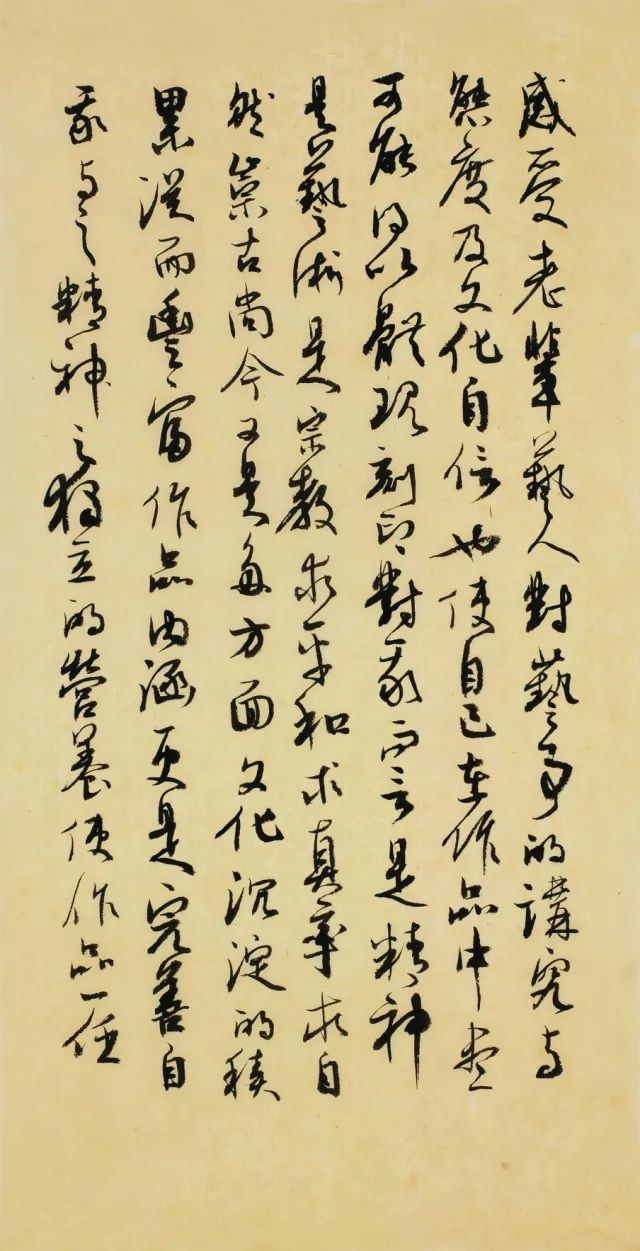 感受老輩藝人對藝事的講究与
態度及文化自信也使自己在作品中盡
可能得以體現刻印對我而言是精神
是藝術是宗教求平和求真率求自
然崇古尚今又是多方面文化沉淀的積
累從而豐富作品內涵更是完善自
我与之精神之獨立的營養使作品一任